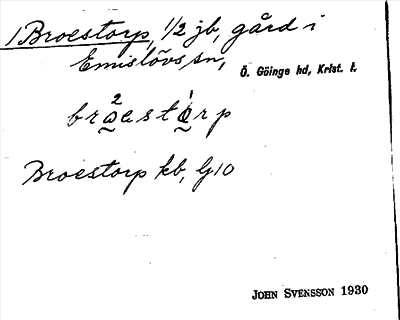 1 Broestorp, 1/2 jb, gård i
Emislövs sn,
Ö. Göinge hd, Krist. l.
Broestorp kb, G10
JOHN SVENSSON 1930